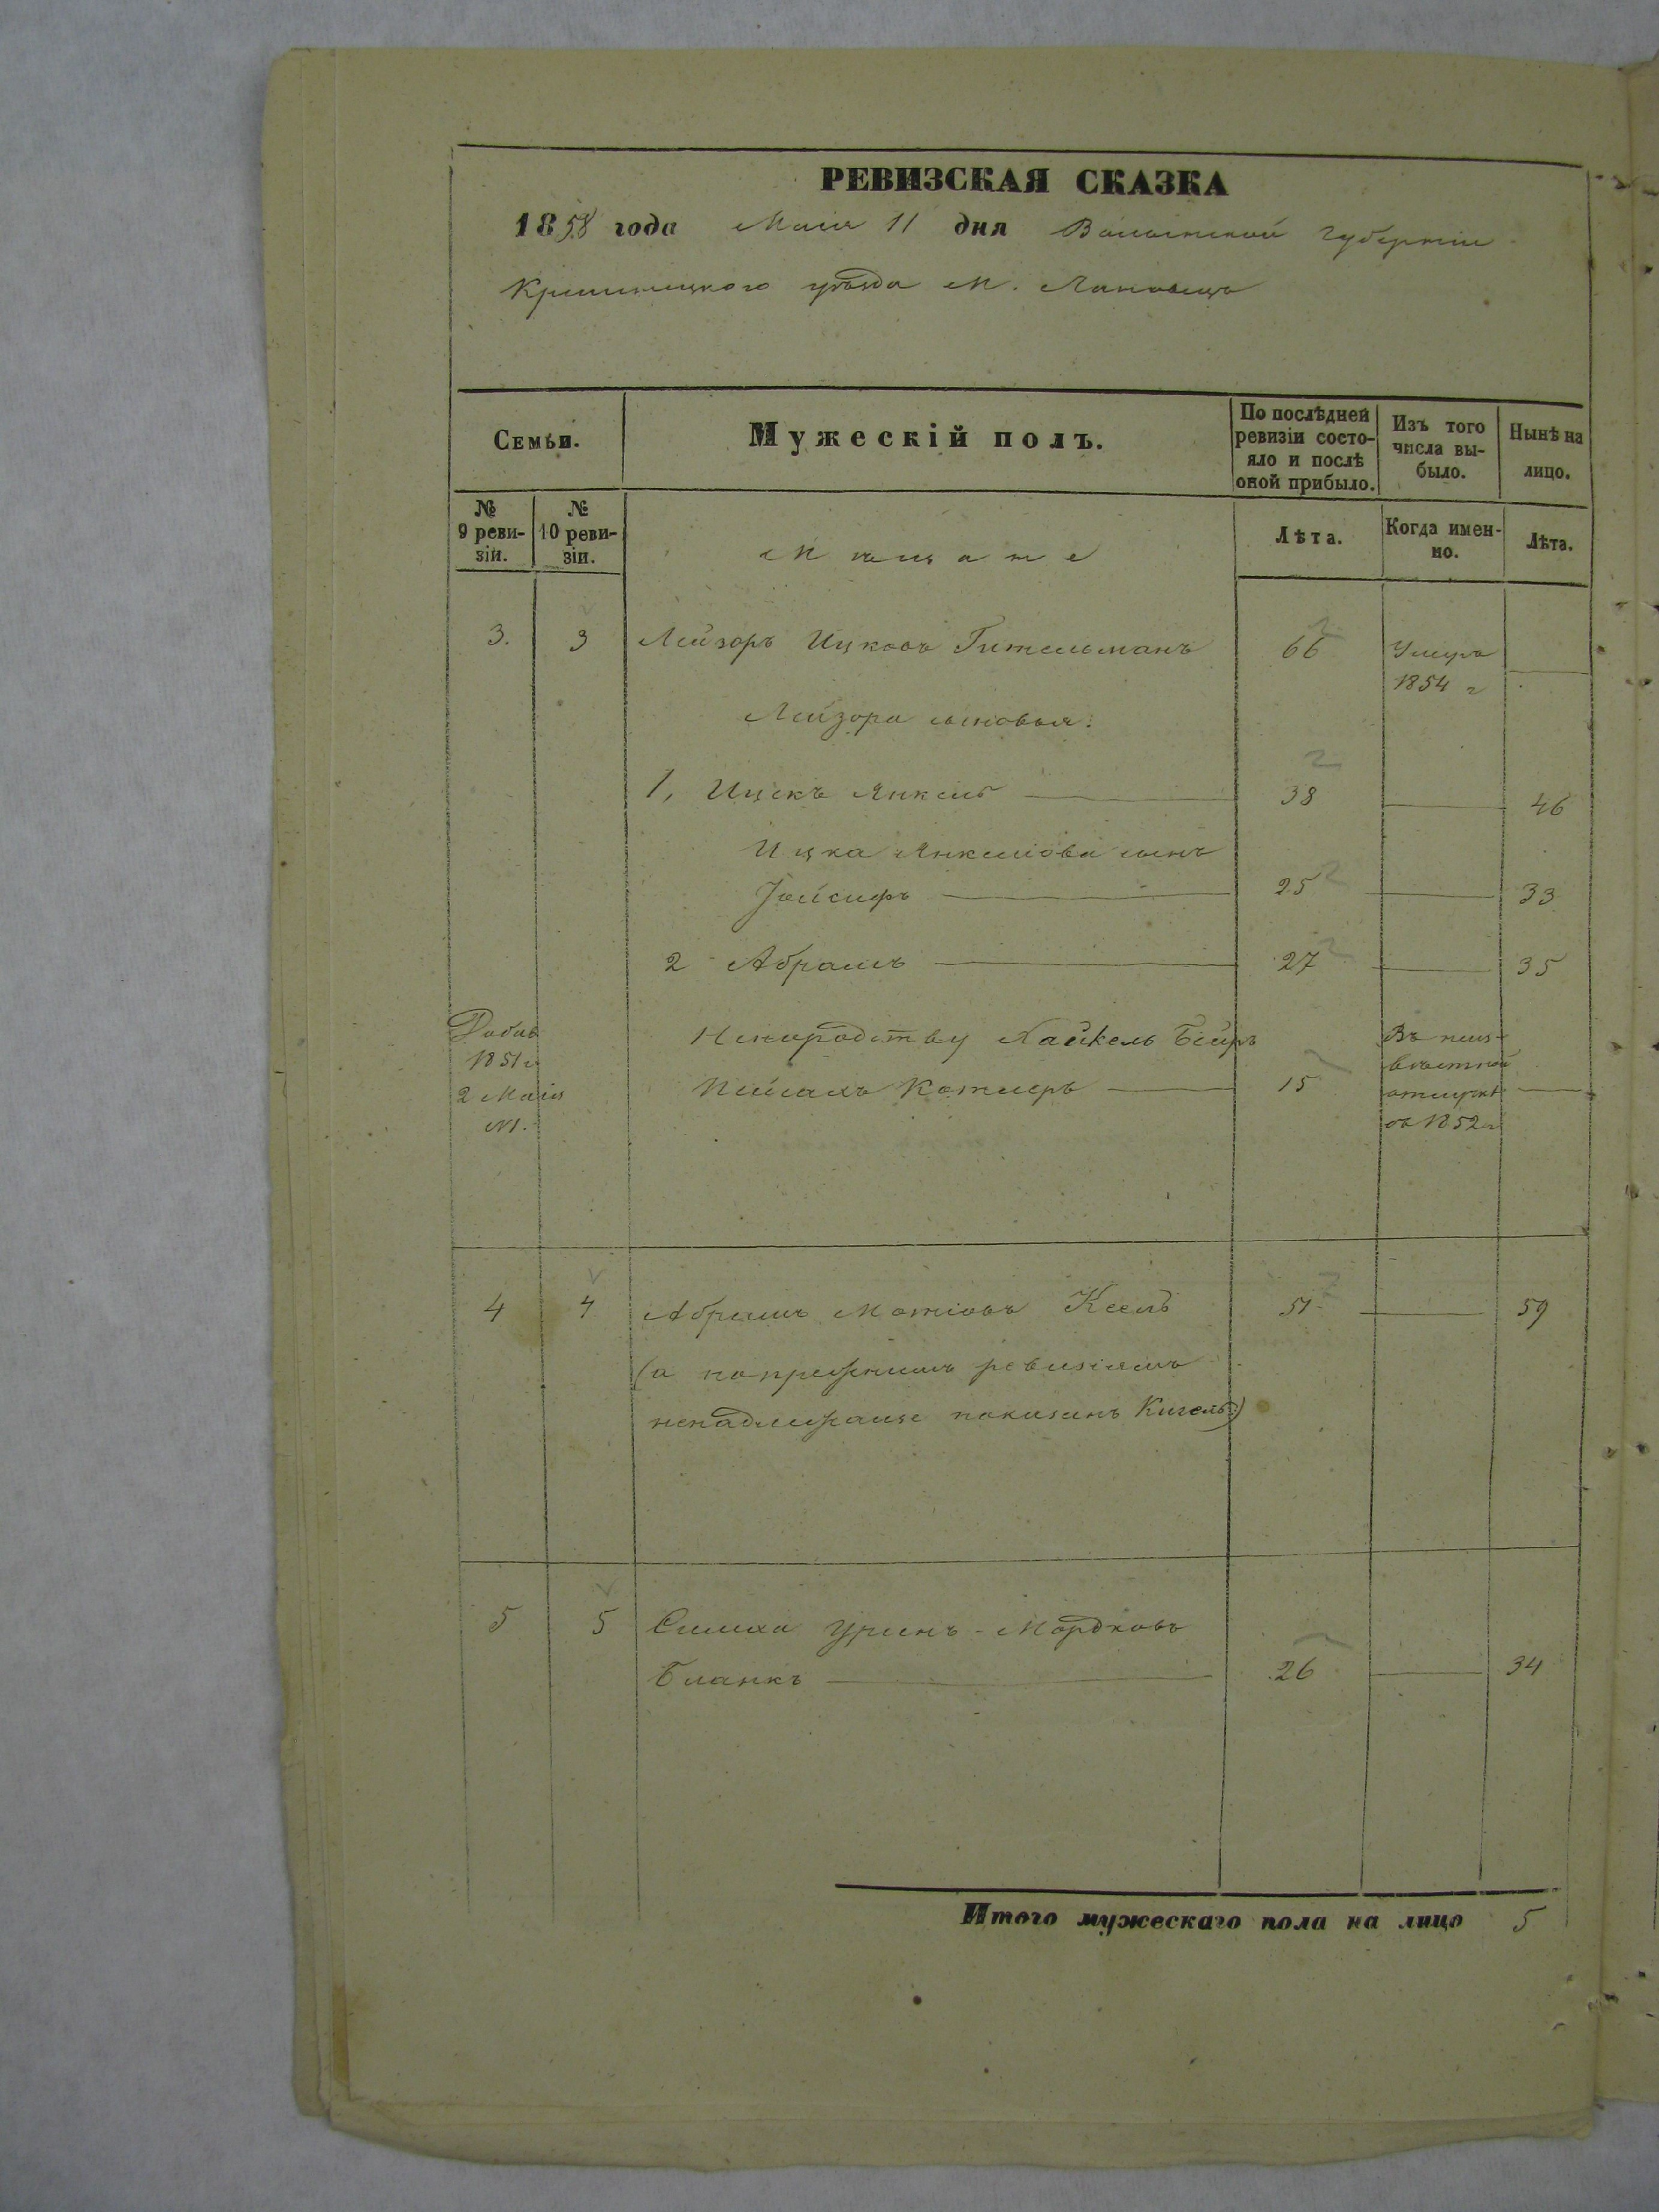 РЕВИЗСКАЯ СКАЗКА
1858 года Маія 11 дня Волынской губерніи
Кременецкого уѣзда М. Лановецъ
Семьи.
Мужескій полъ.
По послѣдней ревизіи состо-
яло и послѣ
оной прибыло.
Изъ того
числа вы-
было.
Нынѣ на
лицо.
№
9 реви-
зіи.
№
10 реви-
зіи.
Мѣщане
Лѣта.
Когда имен-
но.
Лѣта.
3. 3 Лейзоръ Ицковъ Гительманъ 66 Умеръ
1854 г
Лейзора сыновья:
1, Ицекъ Янкель 38 46
Ицка Янкеліова сынъ
Іойсифъ 25 33
2 Абрамъ 27 35
Добав
1851 г
2 Маія
№1.
Непородству Хайкель Бейръ
Пейсахъ Котлеръ 15
Въ неиз-
вѣстной
отлучкѣ
съ 1852 г
4 4 Абрамъ Мотіовъ Кесель 51 59
(а попрежнимъ ревизіямъ
ненадлежаще показанъ Кигель)
5 5 Симха Уринъ-Мордковъ
Бланкъ 26 34
Итого мужескаго пола на лицо 5